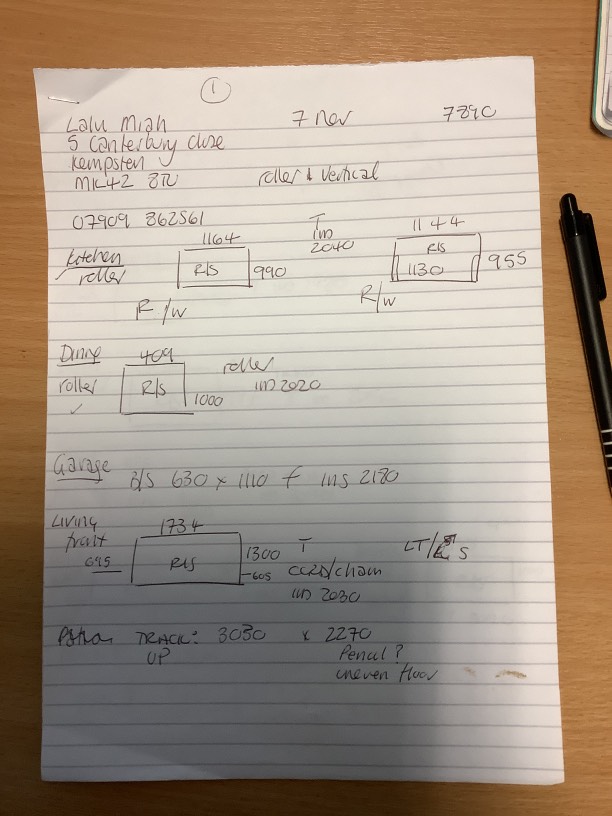 1
Lalu Miah 7 Nov 7890
5 Canterbury Close
Kempsten
MK42 8TU roller & vertical
07909 862561
Kitchen 1164 T 1144
roller R/S 990 Ins 2040 R/S 1130 955
R/W R/W
Dining 409 roller
roller R/S 1000 ins 2020
✓
Garage R/S 630 x 1110 f ins 2180
Living 1734
front R/S 1300 T LT/ S
695 605 CORD/chain
ins 2030
TRACK: 3030 x 2270
UP Pencil?
uneven floor